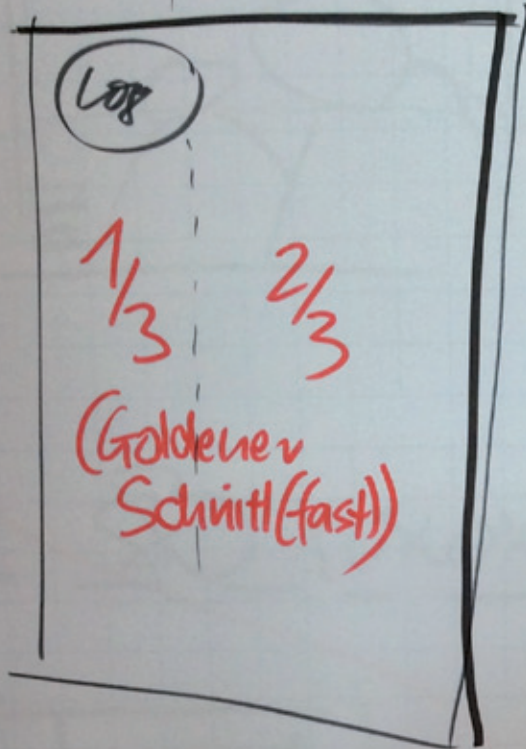 Log
1/3 2/3
(Goldener
Schnitt(fast))